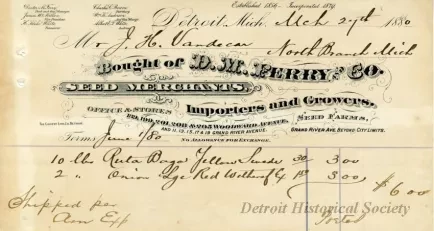 Established 1856. Incorporated 1879.
Detroit, Mich. Mch 27th 1880
Mr J. H. Vandecar
North Branch Mich
Bought of D. M. FERRY AND CO.
SEED MERCHANTS,
Importers and Growers,
OFFICE & STORES
199, 201, 203 & 205 WOODWARD AVENUE,
AND 11, 13, 15, 17 & 19 GRAND RIVER AVENUE.
SEED FARMS,
GRAND RIVER AVE. BEYOND CITY LIMITS.
Terms June 1/80
NO ALLOWANCE FOR EXCHANGE.
10 lbs Ruta Baga Yellow 30 3 00
2 " Onion Lge Red 3 00
$6 00
Shipped per
Am Exp
Detroit Historical Society